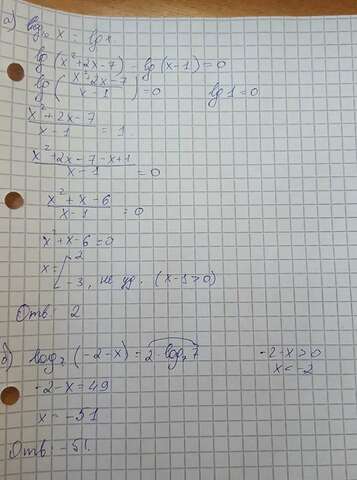 а) log₁₀ x = lg x
lg (x²+2x-7) - lg (x-1) = 0
lg (x²+2x-7 / x-1) = 0 lg 1 = 0
x²+2x-7 / x-1 = 1
x²+2x-7-x+1 / x-1 = 0
x²+x-6 / x-1 = 0
x²+x-6=0
x= [ 2
-3, не уд. (x-1>0)
Отв: 2
б) log₇ (-2-x) = 2·log₇ 7 -2-x>0
-2-x=49 x<-2
x=-51
Отв: -51.